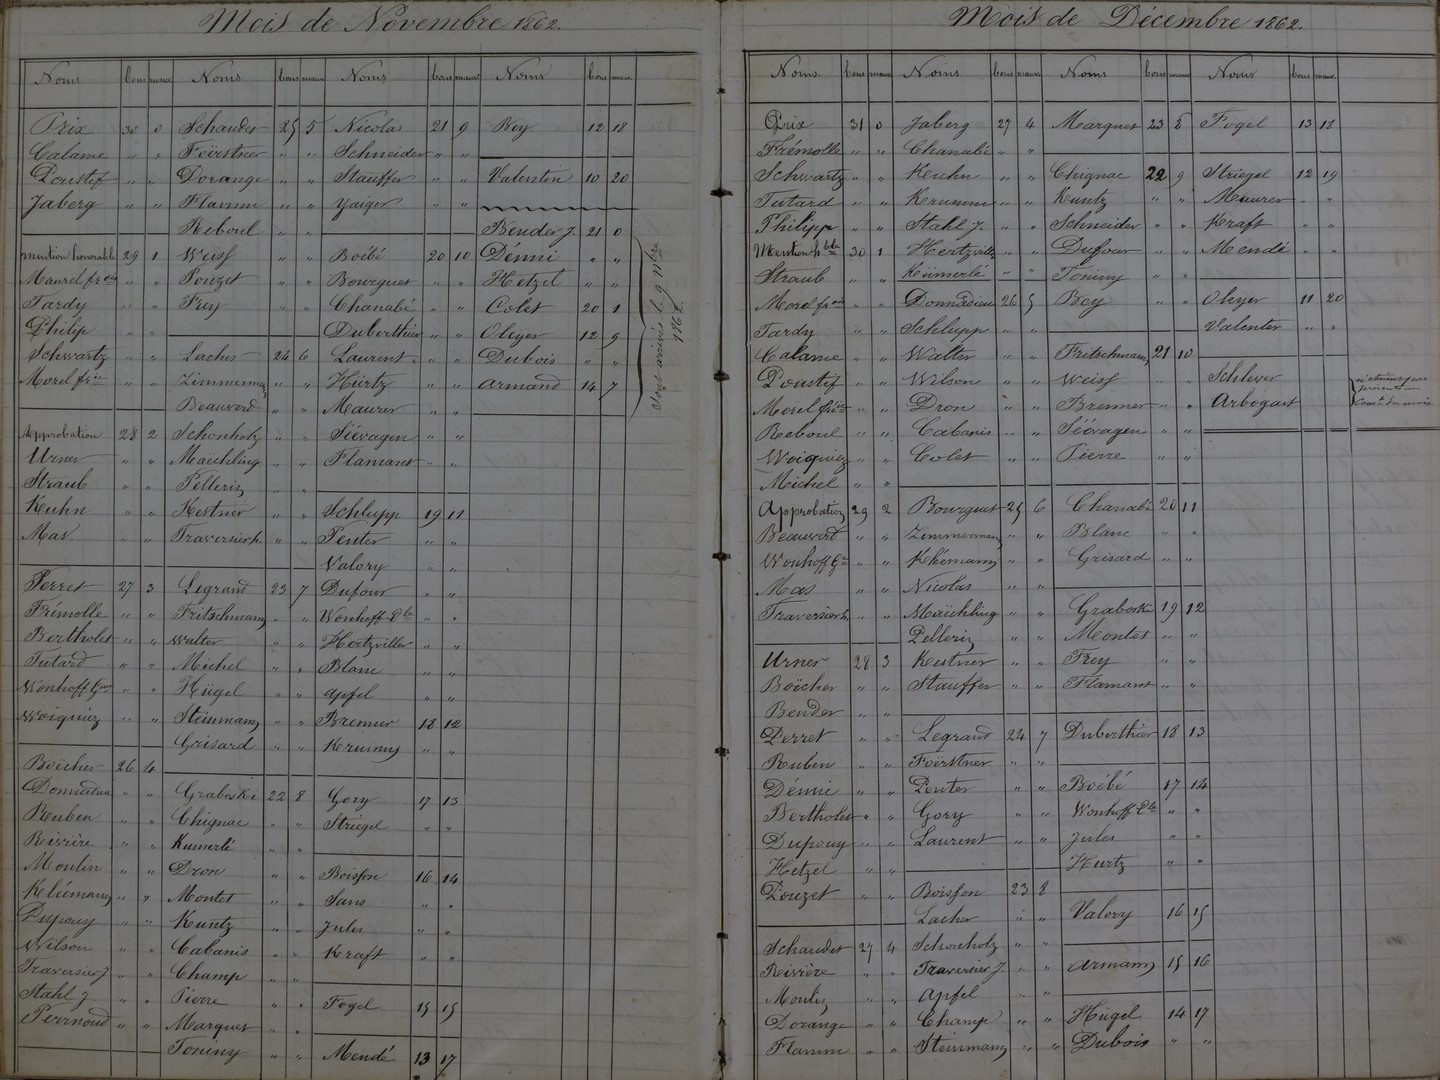 Mois de Novembre 1862.
Noms bons mauv.
Prix 30 0
Calame " "
Poustif " "
Jaberg " "
Mention honorable 29 1
Maurel fr " "
Tardy " "
Philip " "
Schwartz " "
Morel " "
Approbation 28 2
Urner " "
Straub " "
Kuhn " "
Mas " "
Perret 27 3
Frémolle " "
Bertholet " "
Tutard " "
Wonhoff " "
Woiquiez " "
Boëcher 26 4
Donnadieu " "
Reuben " "
Reivière " "
Moulin " "
Kléemann " "
Dupouy " "
Wilson " "
Traversier J. " "
Stahl J. " "
Perrinoud " "
Noms bons mauv.
Schaudet 25 5
Foërstner " "
Dorange " "
Flamm " "
Reboul " "
Weiss " "
Pouzet " "
Frey " "
Lacher 24 6
Zimmermann " "
Beauverd " "
Schonholz " "
Maechling " "
Pellerin " "
Kestner " "
Traversier h. " "
Legrand 23 7
Fritschmann " "
Walter " "
Michel " "
Hügel " "
Steinmann " "
Grisard " "
Graboski 22 8
Chignac " "
Kumerlé " "
Dron " "
Montet " "
Kuntz " "
Cabanis " "
Champ " "
Pierre " "
Marquet " "
Toniny " "
Noms bons mauv.
Nicolas 21 9
Schneider " "
Stauffer " "
Yaiger " "
Boëbé 20 10
Bourguet " "
Chanabé " "
Duberthier " "
Laurent " "
Hürtz " "
Maurer " "
Séévagen " "
Flamant " "
Schlupp 19 11
Penter " "
Valory " "
Dufour " "
Wonhoff " "
Hertzviller " "
Blanc " "
Apfel " "
Bremier 18 12
Krumm " "
Gory 17 13
Striegel " "
Boisson 16 14
Sans " "
Jules " "
Kraft " "
Fogel 15 15
Mendé 13 17
Noms bons mauv.
Rey 12 18
Valentin 10 20
Bender J. 21 0
Démi " "
Hetzel " "
Colet 20 1
Oleyer 12 9
Dubois " "
Armand 14 7
Sont arrivés le 9 9bre 1862.
Mois de Décembre 1862.
Noms. bons mauv.
Prix 31 0
Frémolle " "
Schwartz " "
Tutard " "
Philipp " "
Mention h ble 30 1
Straub " "
Morel " "
Tardy " "
Calame " "
Poustif " "
Morel " "
Reboul " "
Woiquiez " "
Michel " "
Approbation 29 2
Beauverd " "
Wonhoff " "
Mas " "
Traversier h. " "
Urner 28 3
Boëcher " "
Bender " "
Perret " "
Reuben " "
Démi " "
Bertholet " "
Dupouy " "
Hetzel " "
Pouzet " "
Schaudet 27 4
Reivière " "
Moulin " "
Dorange " "
Flamm " "
Noms bons mauv.
Jaberg 27 4
Chanabé " "
Keuhn " "
Krumm " "
Stahl J. " "
Hertzviller " "
Kümerlé " "
Donnadieu 26 5
Schlupp " "
Walter " "
Wilson " "
Dron " "
Cabanis " "
Colet " "
Bourguet 25 6
Zimmermann " "
Kléemann " "
Nicolas " "
Maëchling " "
Pellerin " "
Kestner " "
Stauffer " "
Legrand 24 7
Foërstner " "
Penter " "
Gory " "
Laurent " "
Boisson 23 8
Lacher " "
Schonholz " "
Traversier J. " "
Apfel " "
Champ " "
Steinmann " "
Noms bons mauv.
Marquet 23 8
Chignac 22 9
Kuntz " "
Schneider " "
Dufour " "
Toniny " "
Rey " "
Fritschmann 21 10
Weiss " "
Bremer " "
Séévagen " "
Pierre " "
Chanabé 20 11
Blanc "
Grisard " "
Graboski 19 12
Montet " "
Frey " "
Flamant " "
Duberthier 18 13
Boëbé 17 14
Wonhoff " "
Jules " "
Hurtz " "
Valory 16 15
Armann 15 16
Hügel 14 17
Dubois " "
Noms bons mauv.
Fogel 13 18
Striegel 12 19
Maurer " "
Kraft " "
Mendé " "
Oleyer 11 20
Valenter " "
Schlever
Arbogast